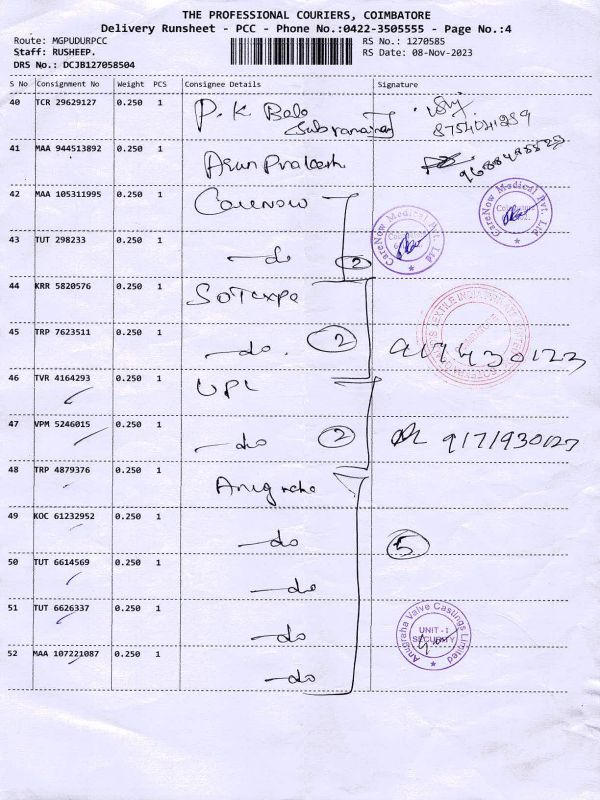 THE PROFESSIONAL COURIERS, COIMBATORE
Delivery Runsheet - PCC - Phone No.:0422-3505555 - Page No.:4
Route: MGPUDURPCC RS No.: 1270585
Staff: RUSHEEP. RS Date: 08-Nov-2023
DRS No.: DCJB127058504
S No Consignment No Weight PCS Consignee Details Signature
40 TCR 29629127 0.250 1 P. K Bala
41 MAA 944513892 0.250 1 Arun Prakash
42 MAA 105311995 0.250 1 Carenow
CareNow Medical Pvt. Ltd
CareNow Medical Pvt. Ltd
43 TUT 298233 0.250 1 -do 2
44 KRR 5820576 0.250 1
45 TRP 7623511 0.250 1 -do. 2
46 TVR 4164293 0.250 1 UPL
47 VPM 5246015 0.250 1 -do 2 9171930127
48 TRP 4879376 0.250 1 Anugraha
49 KOC 61232952 0.250 1 -do 5
50 TUT 6614569 0.250 1 -do
51 TUT 6626337 0.250 1 -do
Anugraha Valve Castings Limited
UNIT - I
SECURITY
52 MAA 107221087 0.250 1 -do